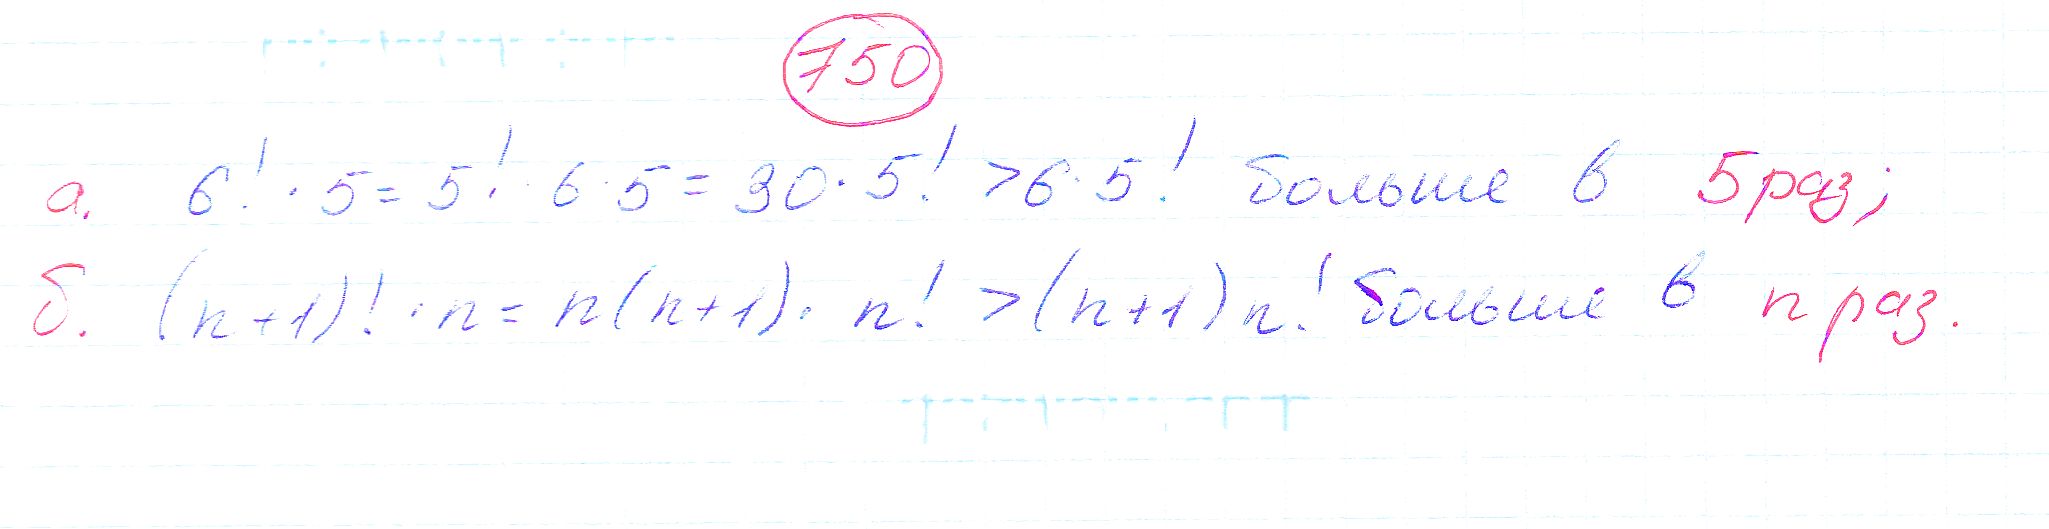 750
а. 6! · 5 = 5! · 6 · 5 = 30 · 5! > 6 · 5! больше в 5 раз;
б. (n+1)! · n = n(n+1) · n! > (n+1)n! больше в n раз.